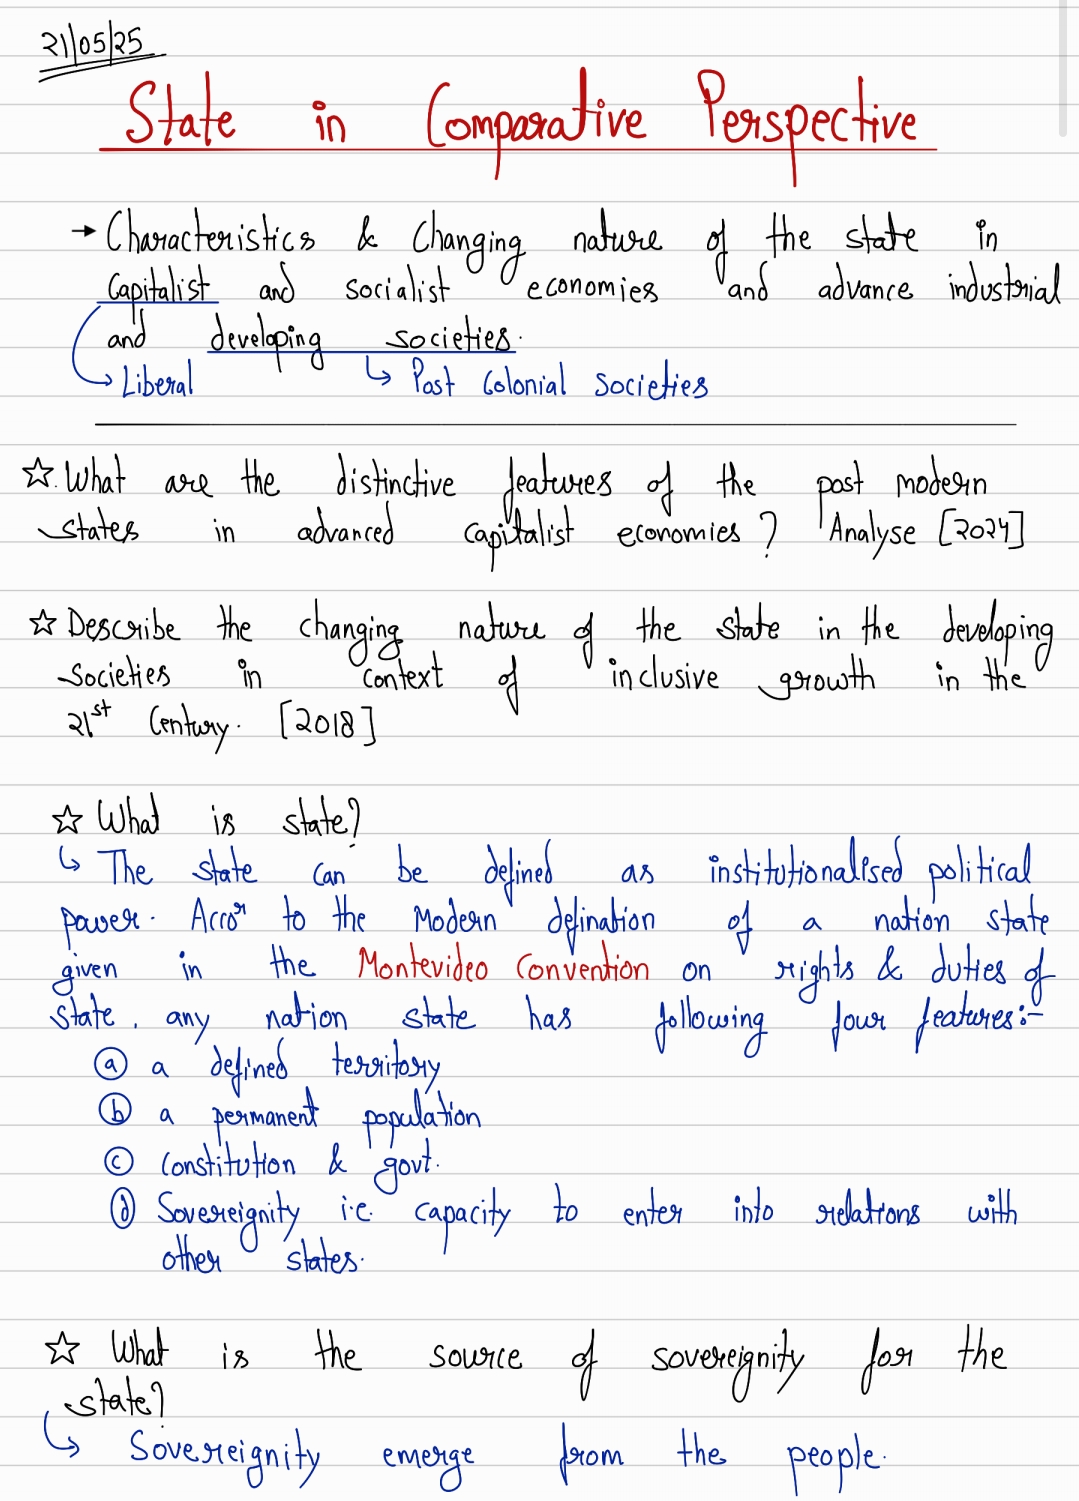 21/05/25
State in Comparative Perspective
→ Characteristics & Changing nature of the state in
Capitalist and socialist economies and advance industrial
and developing societies.
↳ Liberal ↳ Post Colonial Societies
☆ What are the distinctive features of the post modern
states in advanced capitalist economies? Analyse [2024]
☆ Describe the changing nature of the state in the developing
Societies in context of inclusive growth in the
21st Century. [2018]
☆ What is state?
↳ The state can be defined as institutionalised political
power. Accor to the Modern defination of a nation state
given in the Montevideo Convention on rights & duties of
state, any nation state has following four features:-
ⓐ a defined territory
ⓑ a permanent population
ⓒ Constitution & govt.
ⓓ Sovereignity i.e. capacity to enter into relations with
other states.
☆ What is the source of sovereignity for the
state?
↳ Sovereignity emerge from the people.